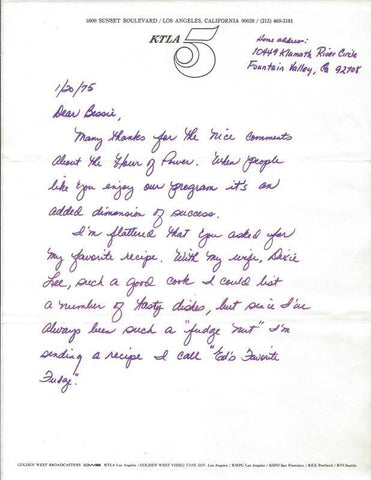 5800 SUNSET BOULEVARD / LOS ANGELES, CALIFORNIA 90028 / (213) 469-3181
KTLA 5
Home address:
10449 Klamath River Circle
Fountain Valley, Ca 92708
1/20/75
Dear Bessie,
Many thanks for the nice comments
about the Hour of Power. When people
like you enjoy our program it's an
added dimension of success.
I'm flattered that you asked for
my favorite recipe. With my wife, Dixie
Lee, such a good cook I could list
a number of tasty dishes, but since I've
always been such a "fudge nut" I'm
sending a recipe I call "Ed's Favorite
Fudge".
GOLDEN WEST BROADCASTERS KTLA Los Angeles / GOLDEN WEST VIDEO TAPE DIV. Los Angeles / KMPC Los Angeles / KSFO San Francisco / KEX Portland / KVI Seattle